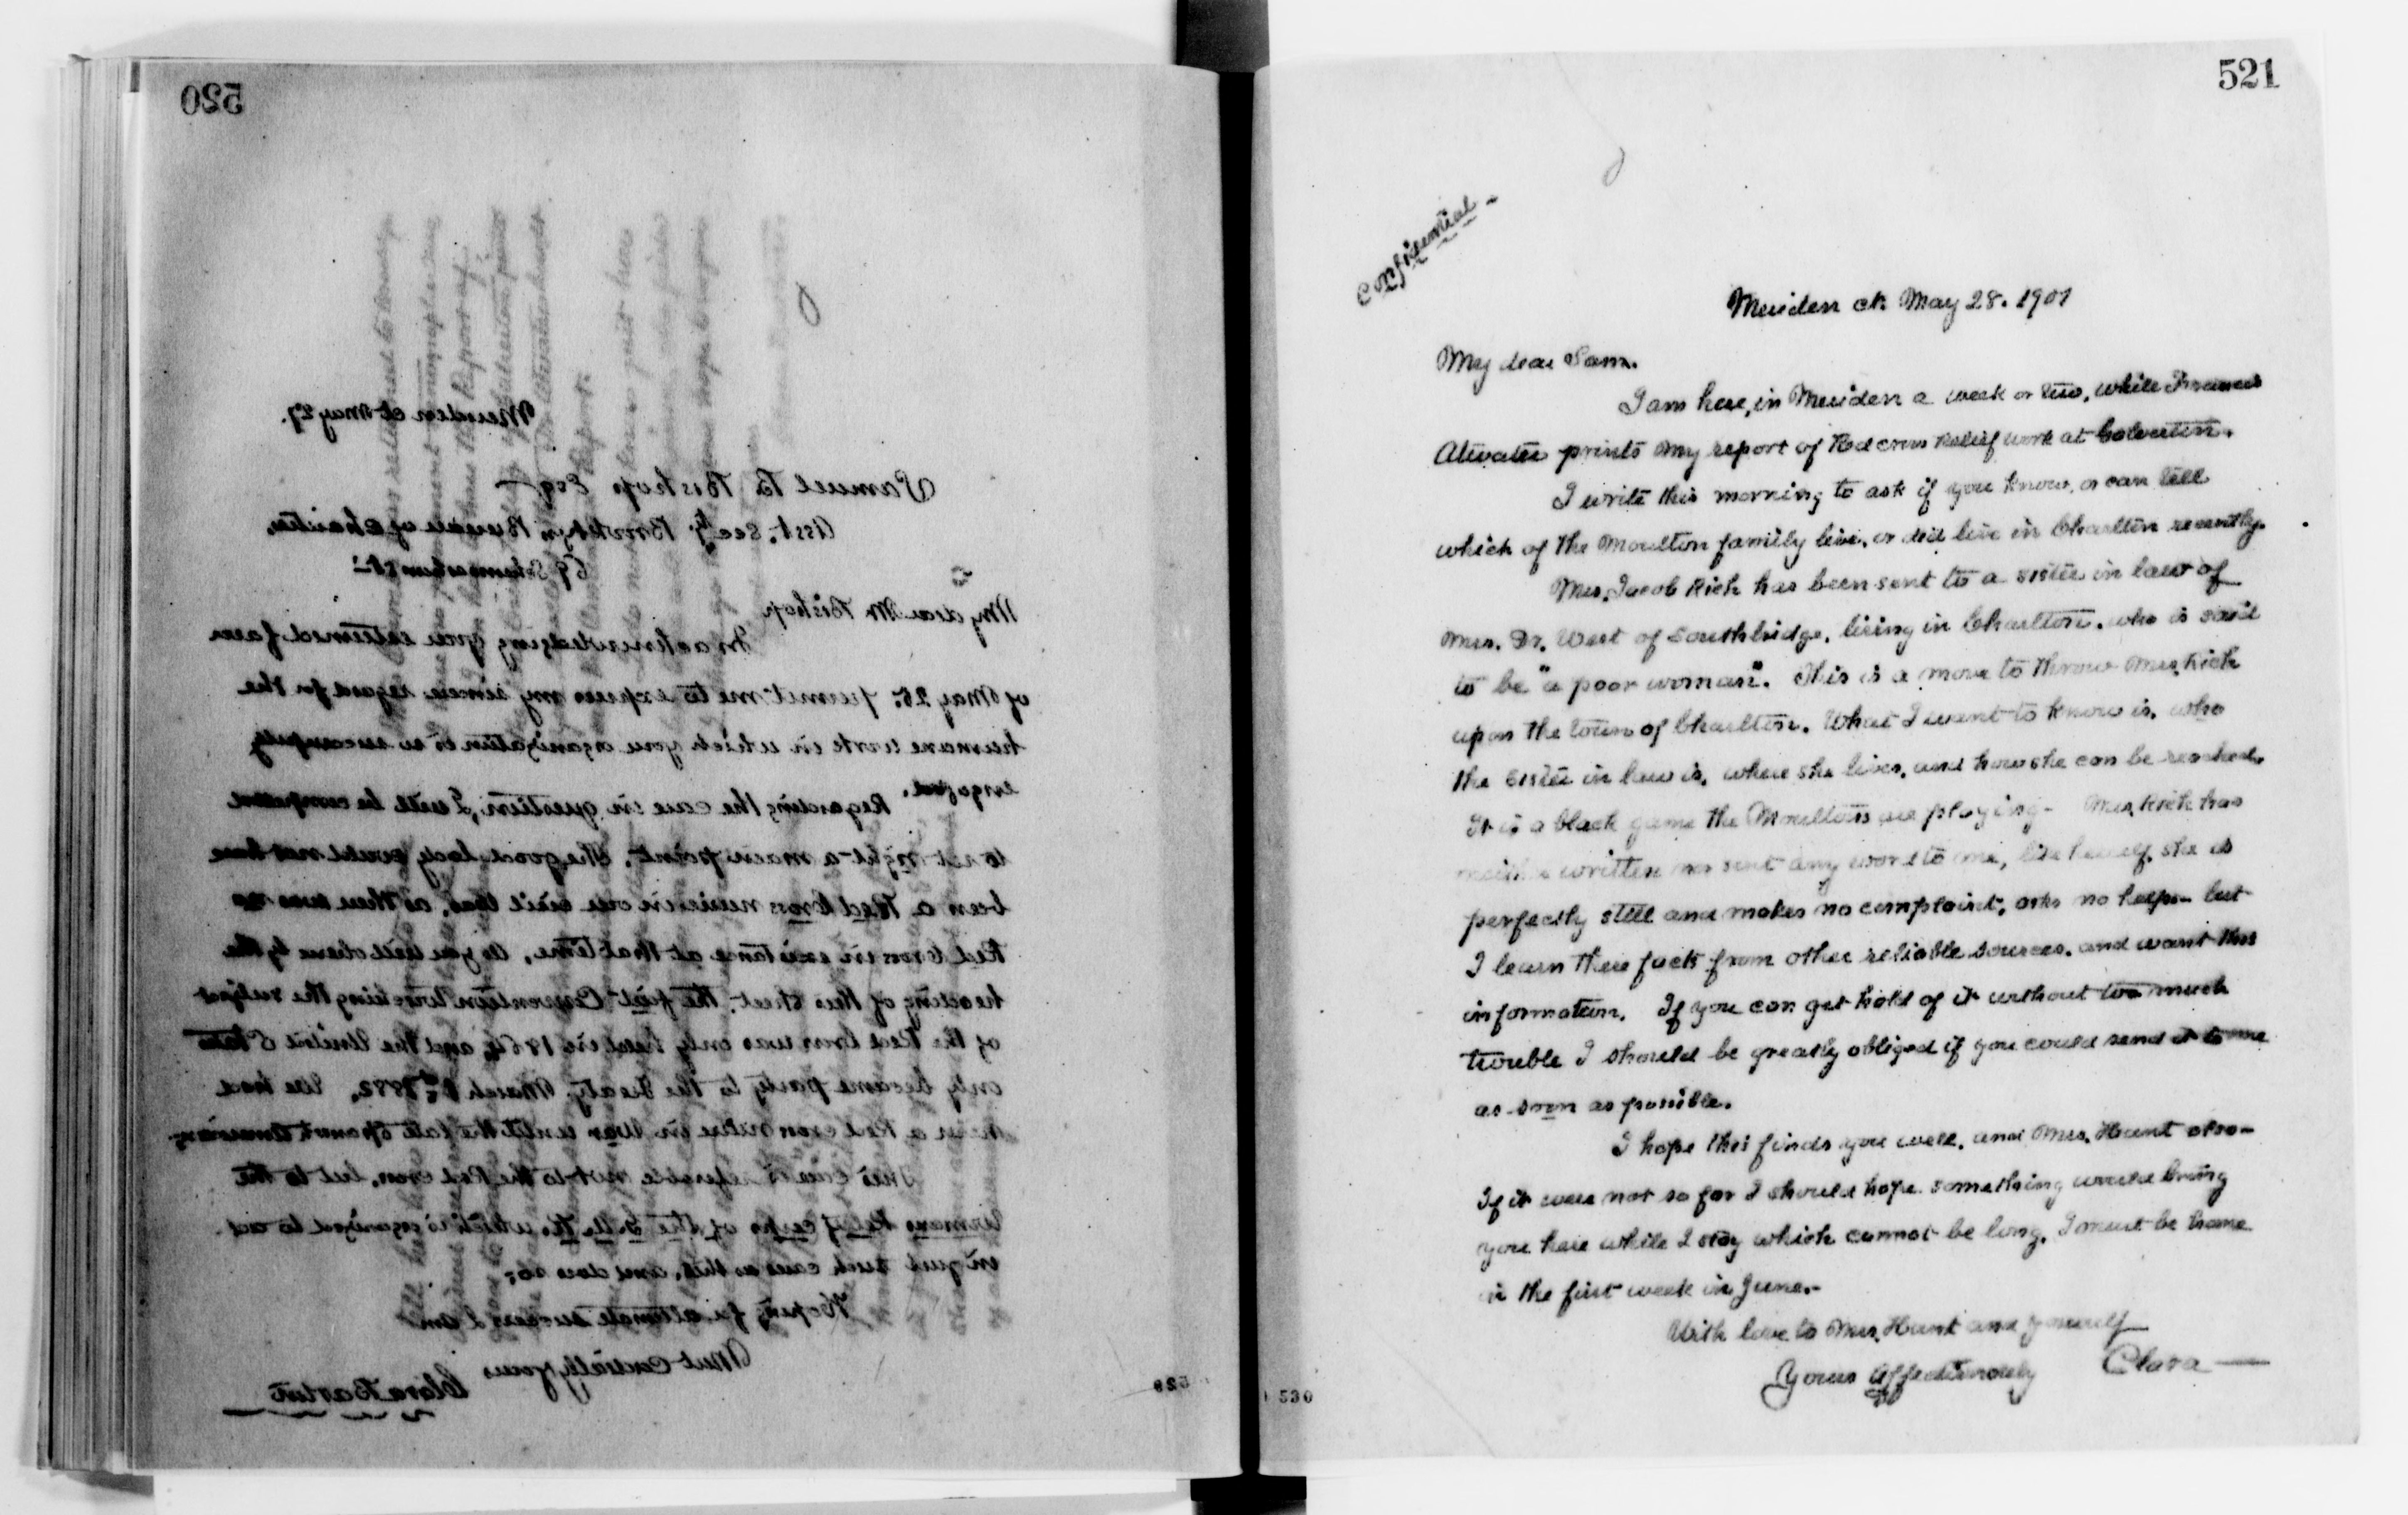 520
Meriden ct May 27.
Samuel B Bishop Esq
Asst. Secty. Brooklyn Bureau of Charities,
69 Schermerhorn St.
My dear Mr Bishop
In acknowledging your esteemed favor
of May 25. permit me to express my sincere regard for the
humane work in which your organization is so successfully
engaged.
Regarding the case in question, I will be competent
to set right a main point. The good lady could not have
been a Red Cross nurse in our civil war, as there was no
Red Cross in existence at that time, as you will observe by the
heading of this sheet. the first Convention touching the subject
of the Red Cross was only held in 1864, and the United States
only became party to the treaty March 1882. We had
never a Red cross nurse in War until the late Spanish American;
This case is referable not to the Red cross, but to the
Womans Relief corps of the G. A. R. which is organized to act
in just such cases as this, and does so;
Hoping for ultimate success I am
Most cordially yours
Clara Barton
529
521
Confidential -
Meriden ct. May 28. 1901
My dear Sam.
I am here, in Meriden a week or two, while Frances
Atwater prints my report of Red cross Relief work at Galveston.
I write this morning to ask if you know, or can tell
which of the Moulton family live, or did live in Charlton recently.
Mrs. Jacob Rich has been sent to a sister in law of
Mrs. Dr. West of Southbridge, living in Charlton, who is said
to be "a poor woman". This is a move to throw Mrs. Rich
upon the town of Charlton. What I want to know is, who
the sister in law is, where she lives, and how she can be reached.
It is a black game the Moultons are playing - Mrs, Rich has
neither written nor sent any word to me, like herself, she is
perfectly still and makes no complaint, asks no help - but
I learn these facts from other reliable sources, and want this
information. If you can get hold of it without too much
trouble I should be greatly obliged if you could send it to me
as soon as possible.
I hope this finds you well, and Mrs. Hunt also -
If it were not so far I should hope something would bring
you here while I stay which cannot be long, I must be home
in the first week in June. -
With love to Mrs, Hunt and yourself
Yours affectionately Clara
530